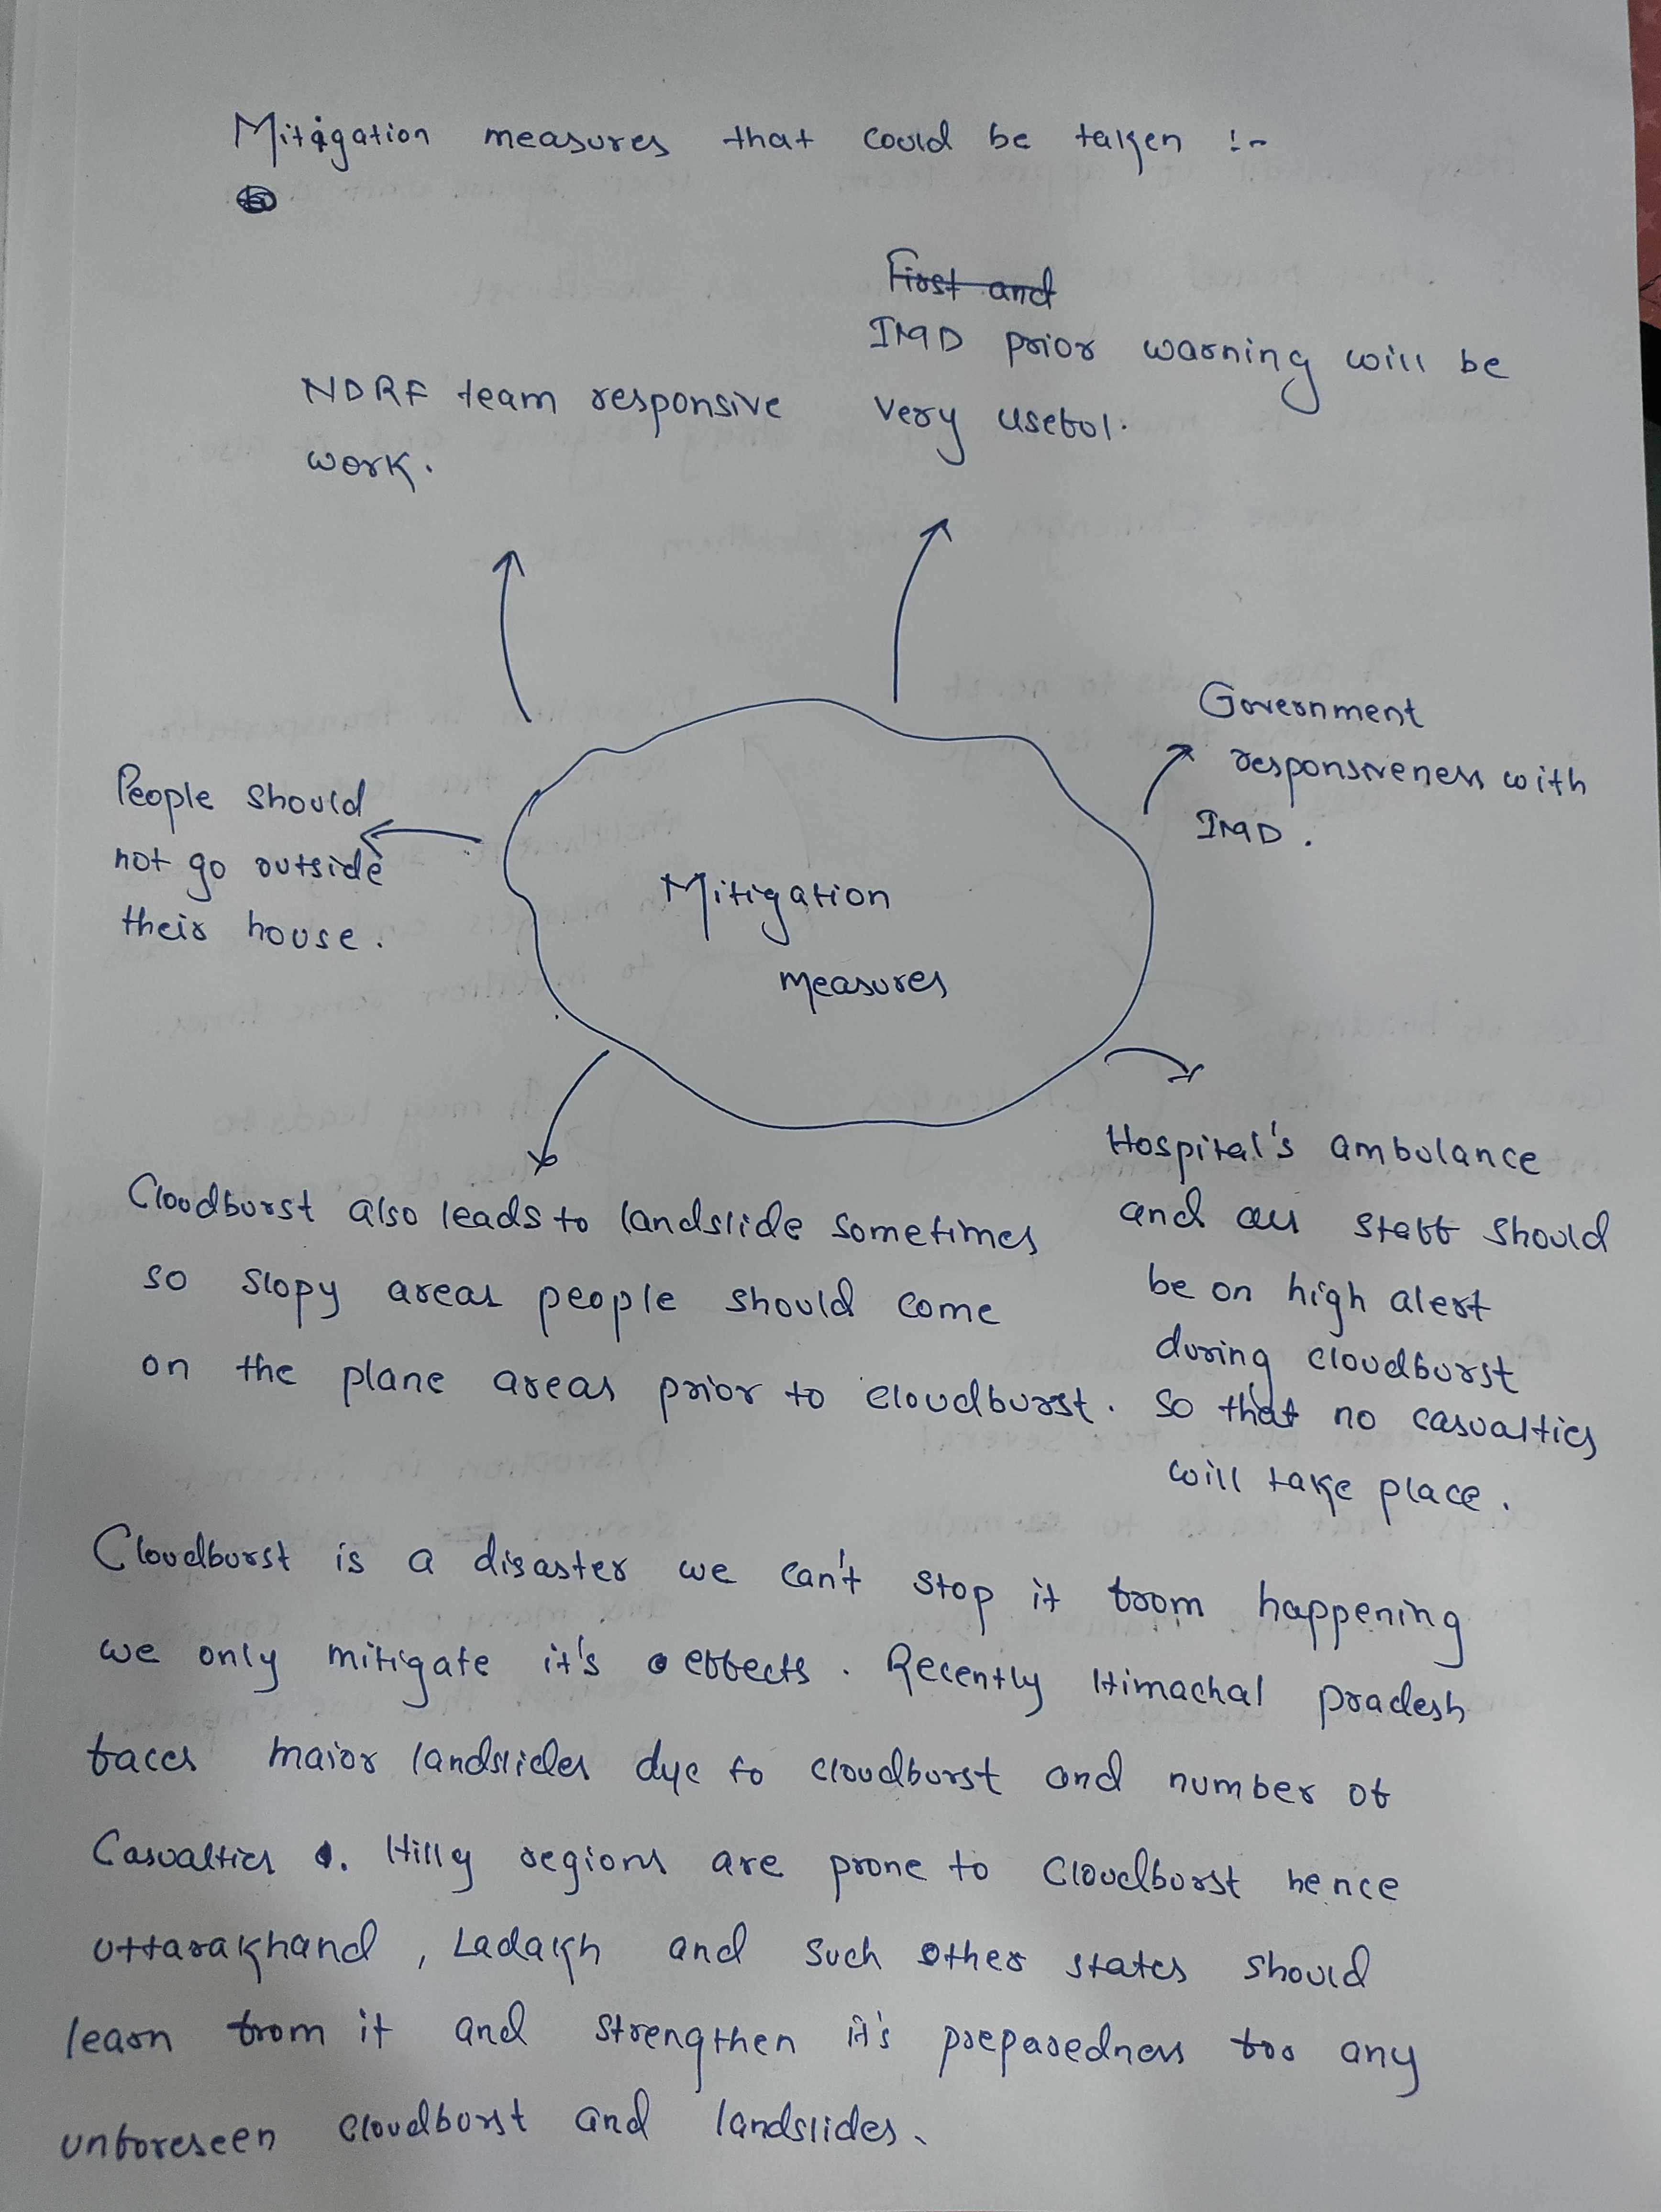 Mitigation measures that could be taken :-
First and
IMD prior warning will be
very useful.
NDRF team responsive
work.
Government
responsiveness with
IMD.
People should
not go outside
their house.
Mitigation
measures
Hospital's ambulance
and all staff should
be on high alert
during cloudburst
so that no casualties
will take place.
Cloudburst also leads to landslide sometimes
so slopy areas people should come
on the plane areas prior to cloudburst.
Cloudburst is a disaster we can't stop it from happening
we only mitigate it's effects. Recently Himachal pradesh
faces maior landslides dye to cloudburst and number of
Casualties. Hilly regions are prone to Cloudburst hence
uttarakhand, Ladakh and such other states should
learn from it and strengthen it's preparedness for any
unforeseen cloudburst and landslides.